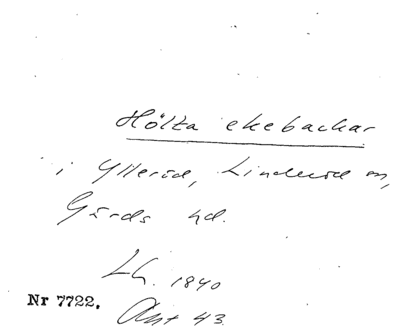 Hölta ekebackar
i Ylleröd, Linderöd sn,
Gärds hd.
Lh. 1840
Nr 7722.
Akt 43.